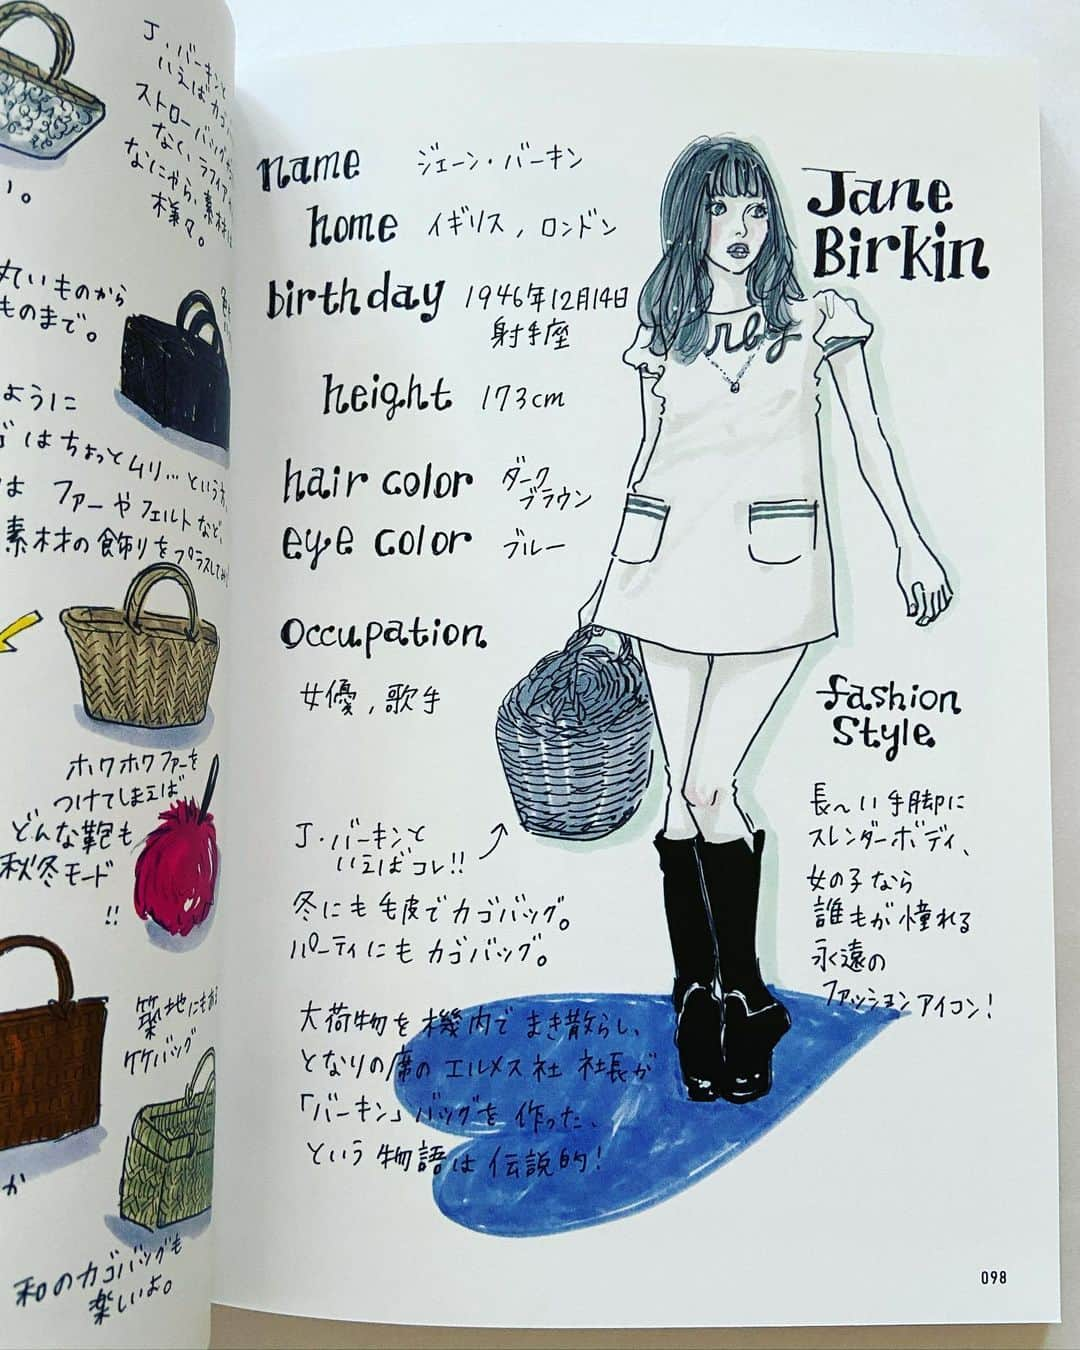 J・バーキンと
いえばカゴバ
ストローバッグ
なく、ラフィア
なにやら、素材は
様々。
い。
丸いものから
ものまで。
ように
はちょっとムリ…という方、
は ファーやフェルトなど、
素材の飾りをプラスしてみ
ホワホワファーを
つけてしまえば
どんな鞄も
秋冬モード
!!
築地にもある
ケケバッグ
か
和のカゴバッグも
楽しいよ。
name ジェーン・バーキン
home イギリス, ロンドン
birthday 1946年12月14日
射手座
height 173cm
hair color ダーク
ブラウン
eye color ブルー
Occupation
女優, 歌手
J・バーキンと
いえばコレ!!
冬にも毛皮でカゴバッグ。
パーティにもカゴバッグ。
大荷物を機内でまき散らし、
となりの席のエルメス社 社長が
「バーキン」バッグを作った、
という物語は伝説的!
Jane
Birkin
rby
fashion
Style
長〜い手脚に
スレンダーボディ、
女の子なら
誰もが憧れる
永遠の
ファッションアイコン!
098